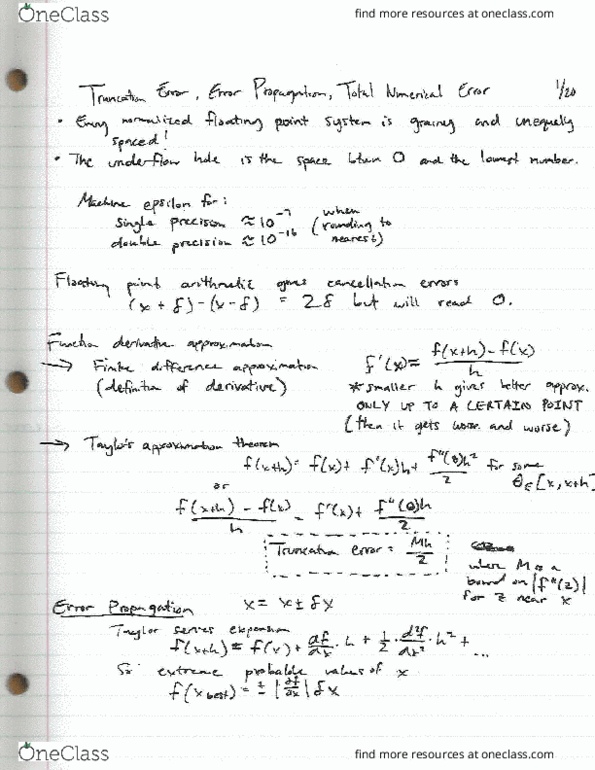 OneClass
find more resources at oneclass.com
Truncation Error, Error Propagation, Total Numerical Error 1/20
• Every normalized floating point system is grainy and unequally
spaced!
• The underflow hole is the space btwn 0 and the lowest number.
Machine epsilon for:
single precision ≈ 10^-7 (when
double precision ≈ 10^-16 rounding to
nearest)
Floating point arithmetic gives cancellation errors
(x + δ) - (x - δ) = 2δ but will read 0.
Function derivative approximation
→ Finite difference approximation f'(x) ≈ (f(x+h) - f(x)) / h
(definition of derivative) * smaller h gives better approx.
ONLY UP TO A CERTAIN POINT
(then it gets worse and worse)
→ Taylor's approximation theorem
f(x+h) = f(x) + f'(x)h + f''(θ)h²/2 for some
θ∈[x, x+h]
or
(f(x+h) - f(x)) / h = f'(x) + f''(θ)h/2
Truncation error = Mh/2
where M is a
bound on |f''(z)|
for z near x
Error Propagation x = x ± δx
Taylor series expansion
f(x+h) = f(x) + df/dx · h + 1/2 · d²f/dx² · h² + ...
So extreme probable values of x
f(x best) = ± |df/dx| δx
OneClass
find more resources at oneclass.com